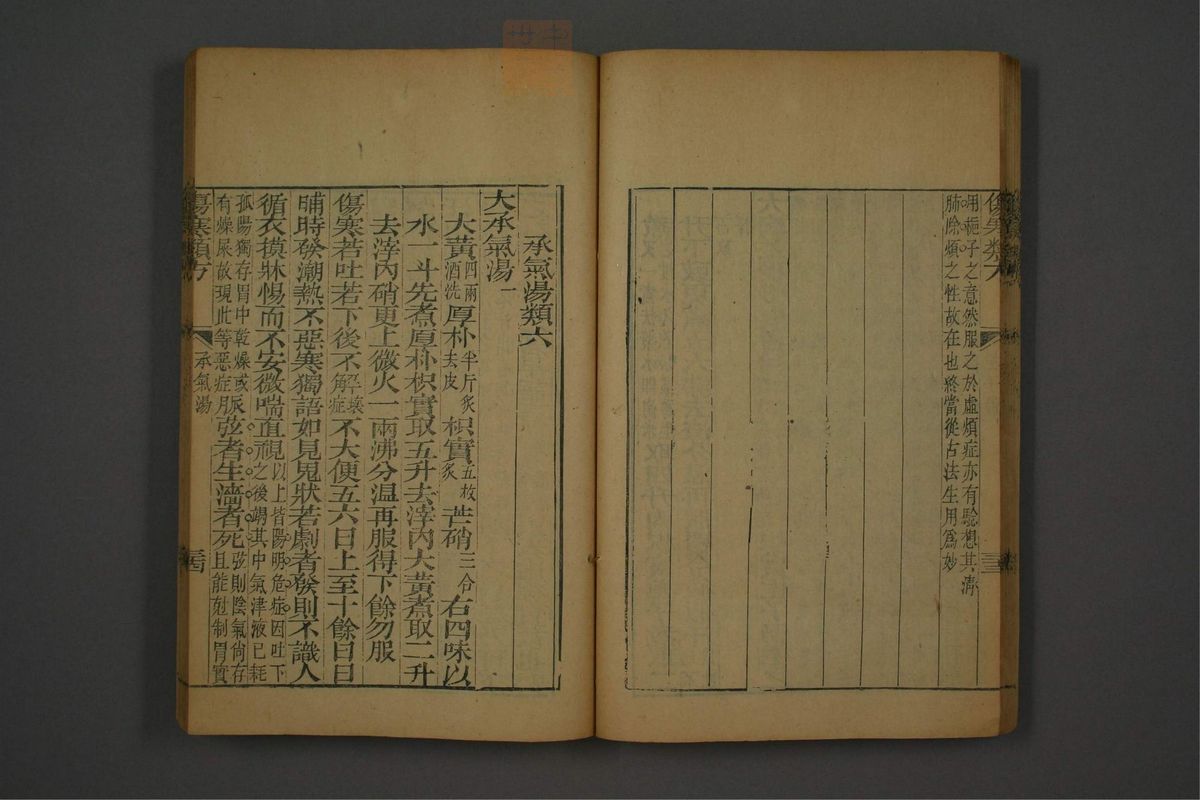 用梔子之意然服之於虛煩症亦有驗想其清
肺除煩之性故在也終當從古法生用爲妙
承氣湯類六
大承氣湯一
大黃四兩酒洗厚朴半斤炙去皮枳實五枚炙芒硝三合右四味以
水一斗先煮厚朴枳實取五升去滓內大黃煮取二升
去滓內硝更上微火一兩沸分温再服得下餘勿服
傷寒若吐若下後不解壞症不大便五六日上至十餘日日
晡時發潮熱不惡寒獨語如見鬼狀若劇者發則不識人
循衣摸牀惕而不安微喘直視以上皆陽明危症因吐下之後竭其中氣津液已耗
孤陽獨存胃中乾燥或有燥屎故現此等惡症脈弦者生濇者死弦則陰氣尚存且能尅制胃實
傷寒類方
承氣湯